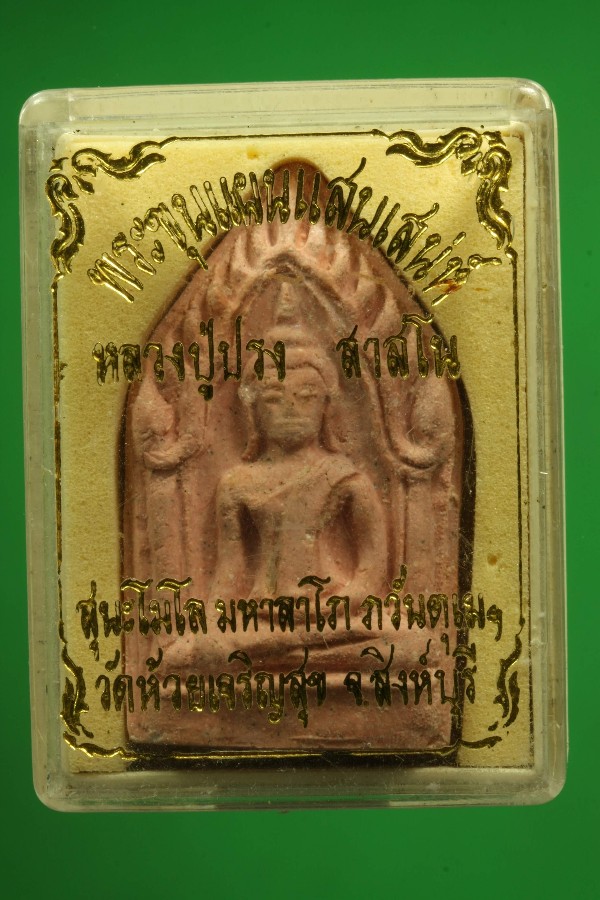 พระขุนแผนแสนเสน่ห์
หลวงปู่ปรง สาสโน
สุนะโมโล มหาลาโภ ภวันตุเมฯ
วัดห้วยเจริญสุข จ.สิงห์บุรี